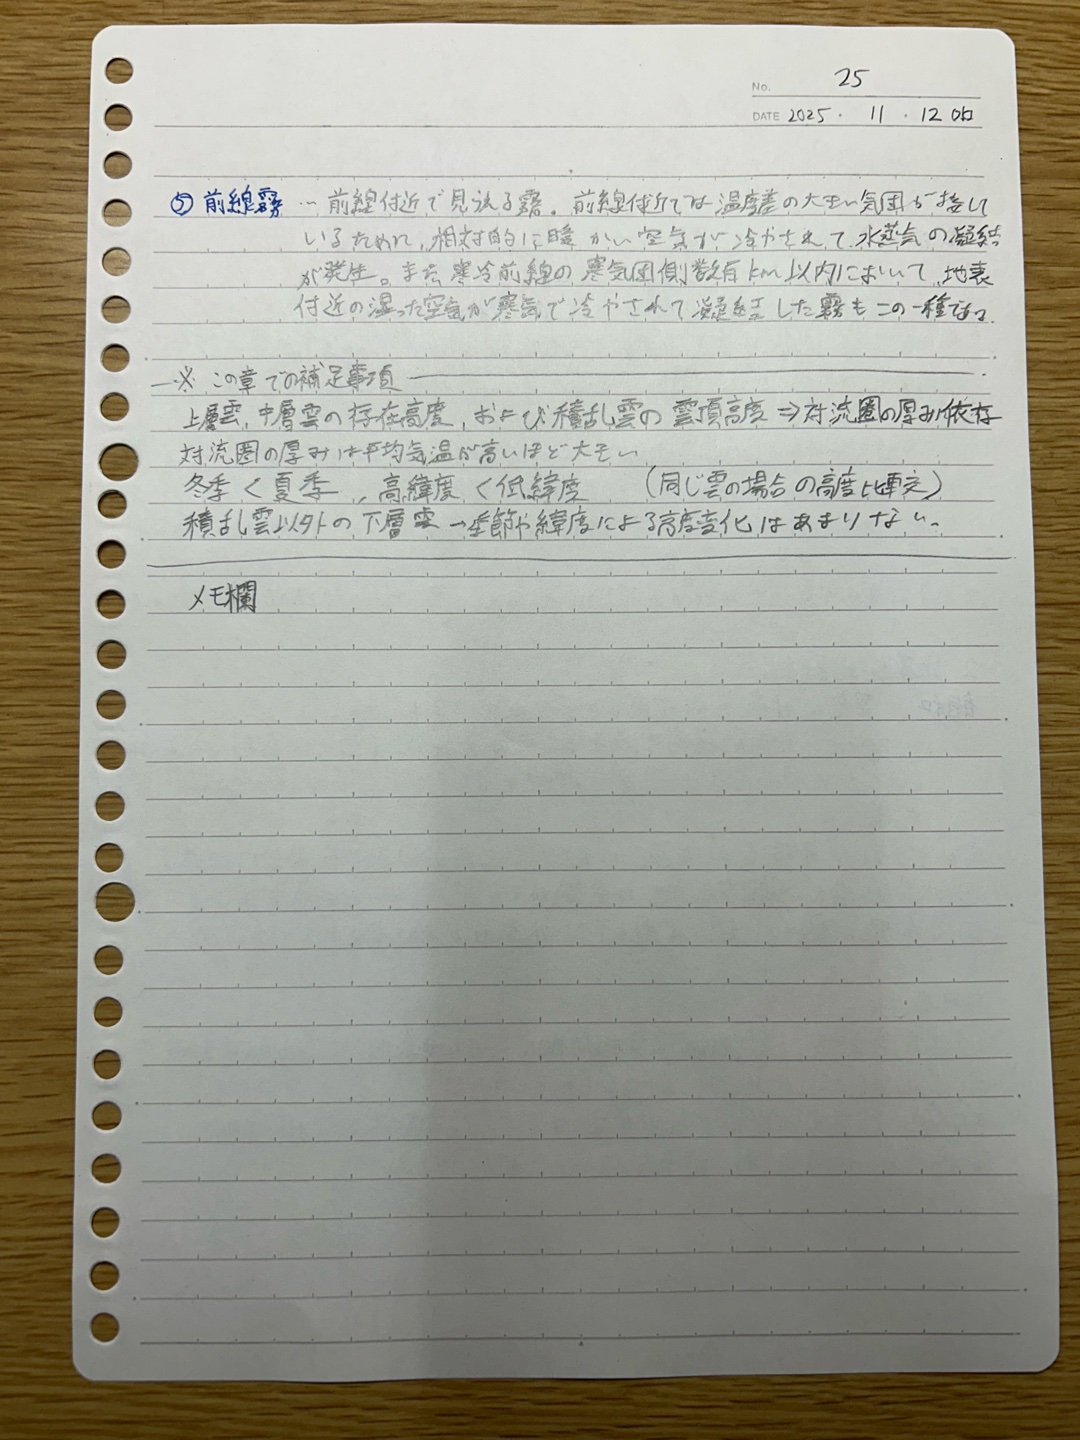 No. 25
DATE 2025 ・ 11 ・ 12 (水)
⑤ 前線霧 … 前線付近で見られる霧。前線付近では温度差の大きい気団が接して
いるために、相対的に暖かい空気が冷やされて水蒸気の凝結
が発生。また寒冷前線の寒気団側数百km以内において、地表
付近の湿った空気が寒気で冷やされて凝結した霧もこの一種である。
※ この章での補足事項
上層雲、中層雲の存在高度、および積乱雲の雲頂高度 ⇒ 対流圏の厚みに依存
対流圏の厚みは平均気温が高いほど大きい
冬季 < 夏季 、高緯度 < 低緯度 (同じ雲の場合の高度比較)
積乱雲以外の下層雲 → 季節や緯度による高度変化はあまりない。
メモ欄